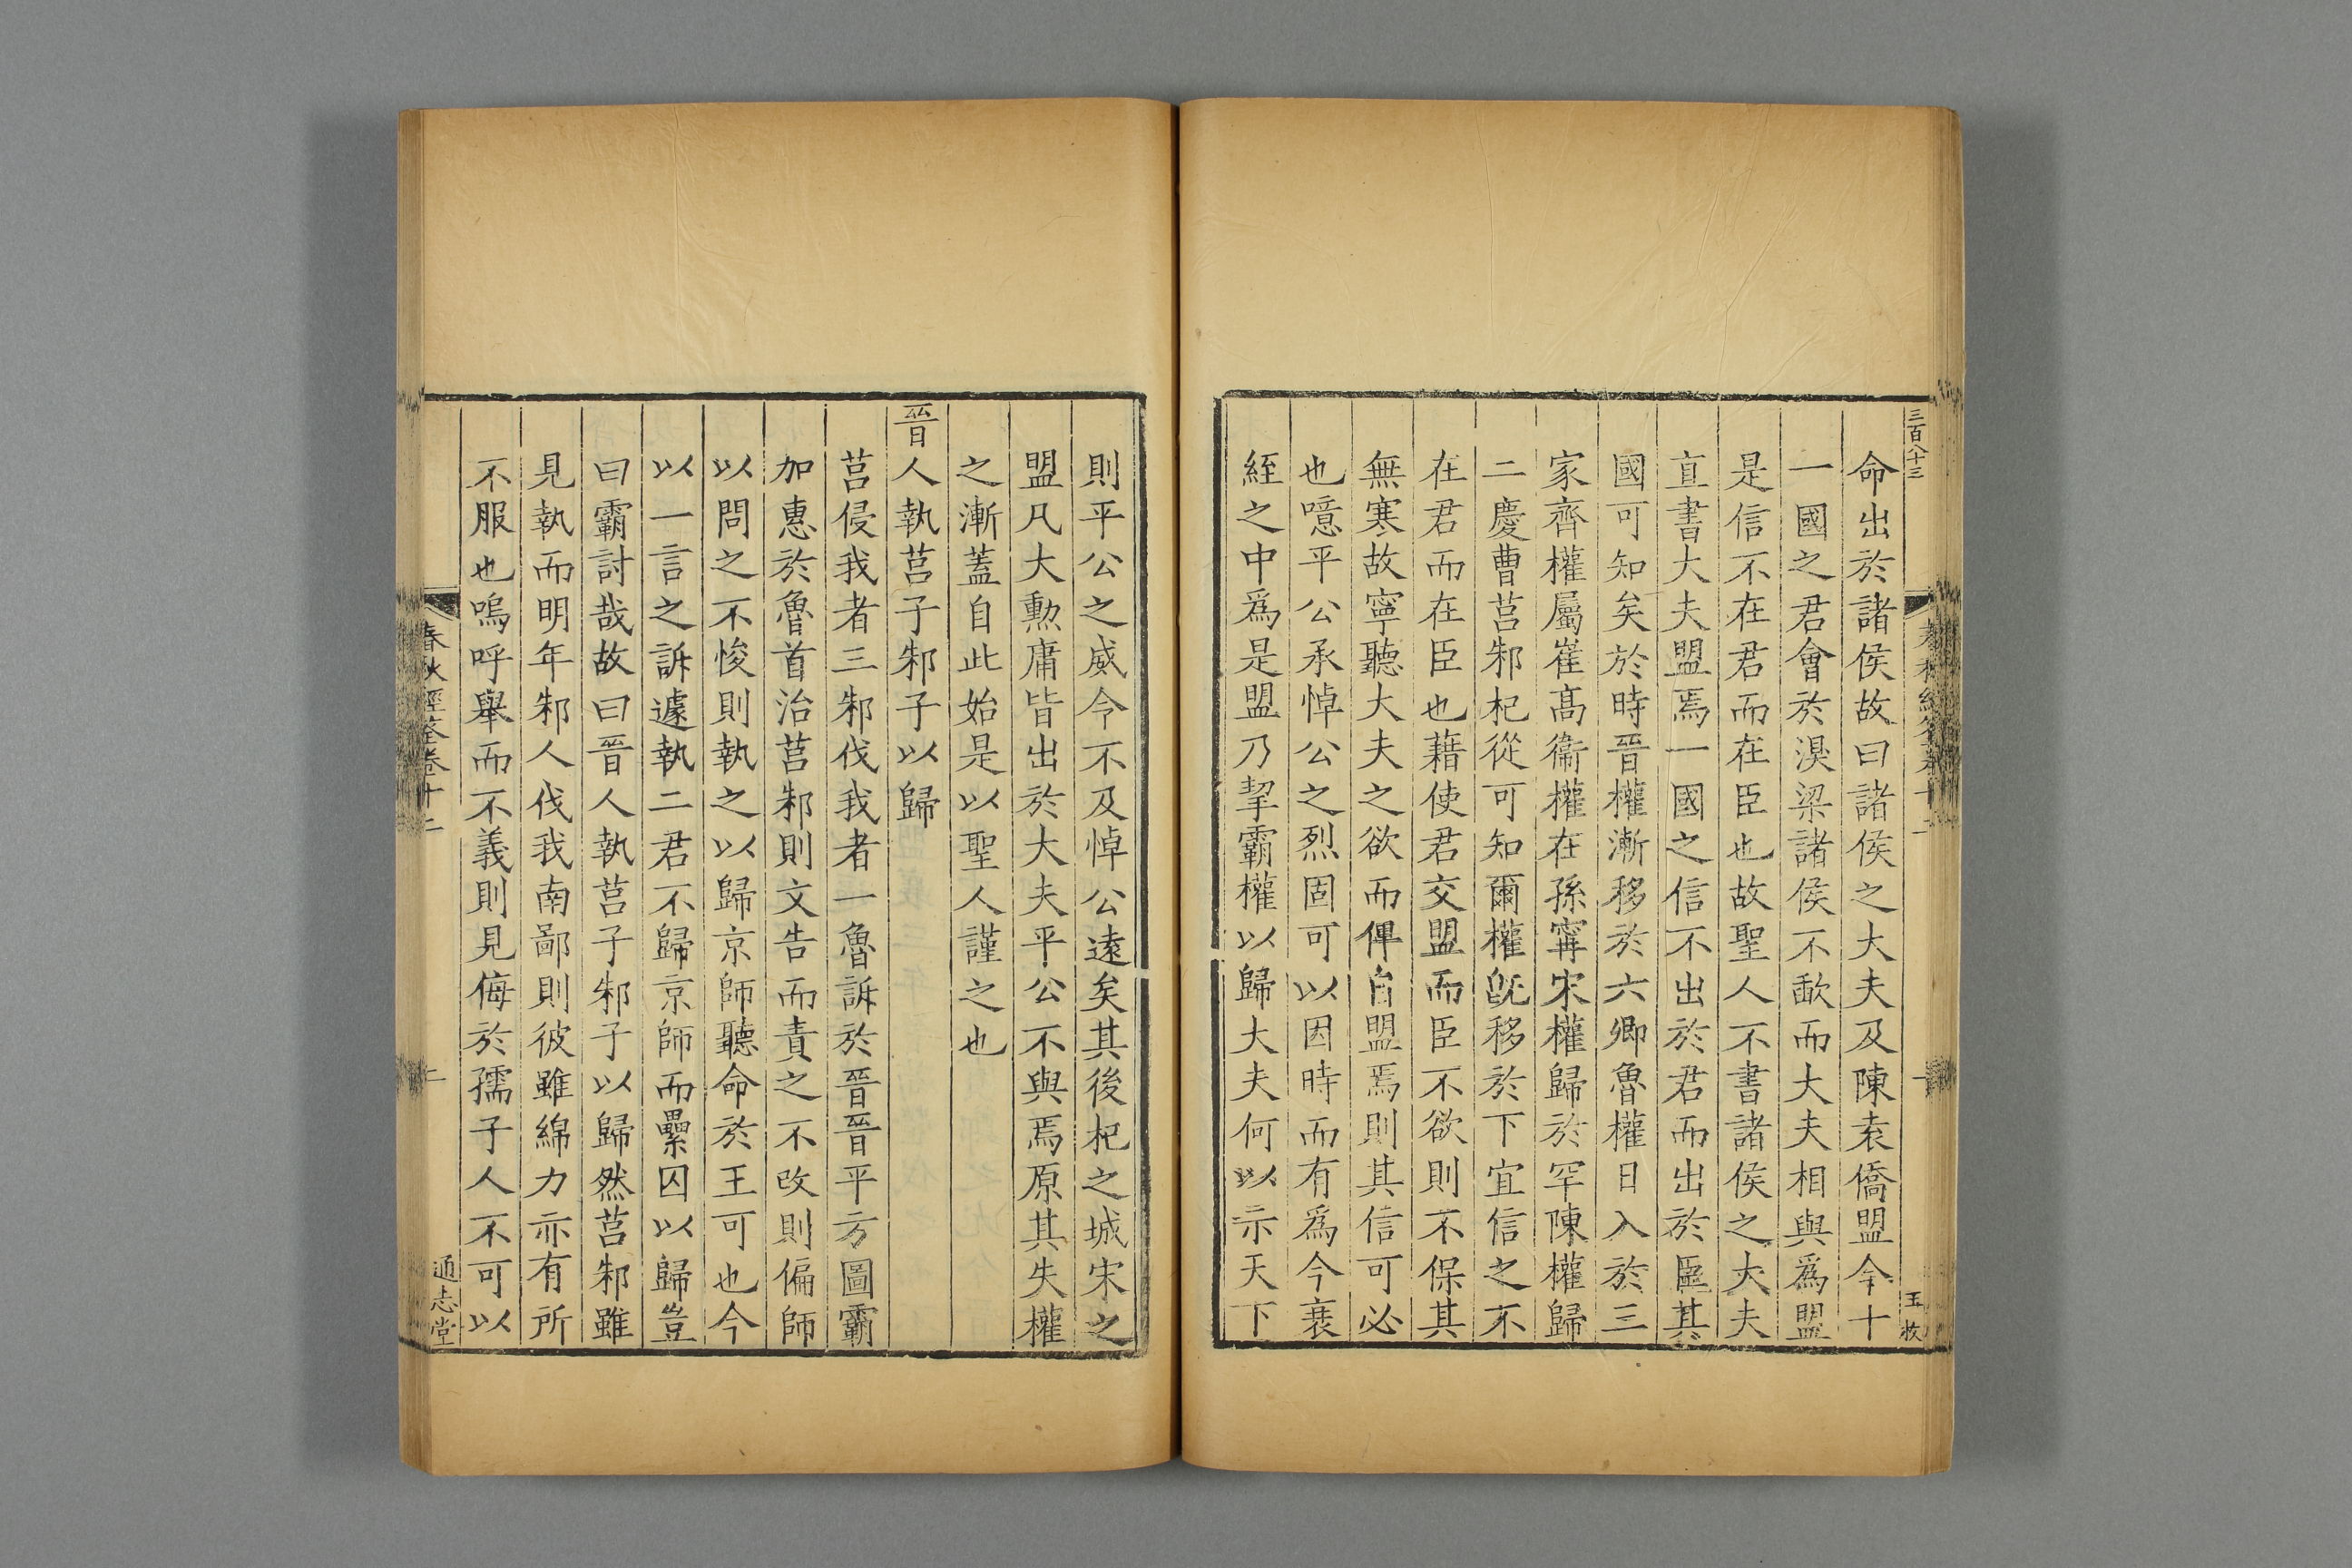 三百八十三
命出於諸侯故曰諸侯之大夫及陳袁僑盟今十
一國之君會於湨梁諸侯不歃而大夫相與爲盟
是信不在君而在臣也故聖人不書諸侯之大夫
直書大夫盟焉一國之信不出於君而出於臣其
國可知矣於時晉權漸移於六卿魯權日入於三
家齊權屬崔髙衞權在孫寗宋權歸於罕陳權歸
二慶曹莒邾杞從可知爾權旣移於下宜信之不
在君而在臣也藉使君交盟而臣不欲則不保其
無寒故寧聽大夫之欲而俾自盟焉則其信可必
也噫平公承悼公之烈固可以因時而有爲今衰
絰之中爲是盟乃挈霸權以歸大夫何以示天下
則平公之威令不及悼公遠矣其後杞之城宋之
盟凡大勲庸皆出於大夫平公不與焉原其失權
之漸蓋自此始是以聖人謹之也
晉人執莒子邾子以歸
莒侵我者三邾伐我者一魯訴於晉晉平方圖霸
加惠於魯首治莒邾則文告而責之不改則偏師
以問之不悛則執之以歸京師聽命於王可也今
以一言之訴遽執二君不歸京師而纍囚以歸豈
曰霸討哉故曰晉人執莒子邾子以歸然莒邾雖
見執而明年邾人伐我南鄙則彼雖綿力亦有所
不服也嗚呼舉而不義則見侮於孺子人不可以
春秋經筌卷十二
二
通志堂